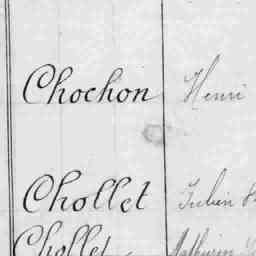 Chochon Henri
Chollet Julien
Chollet Mathurin